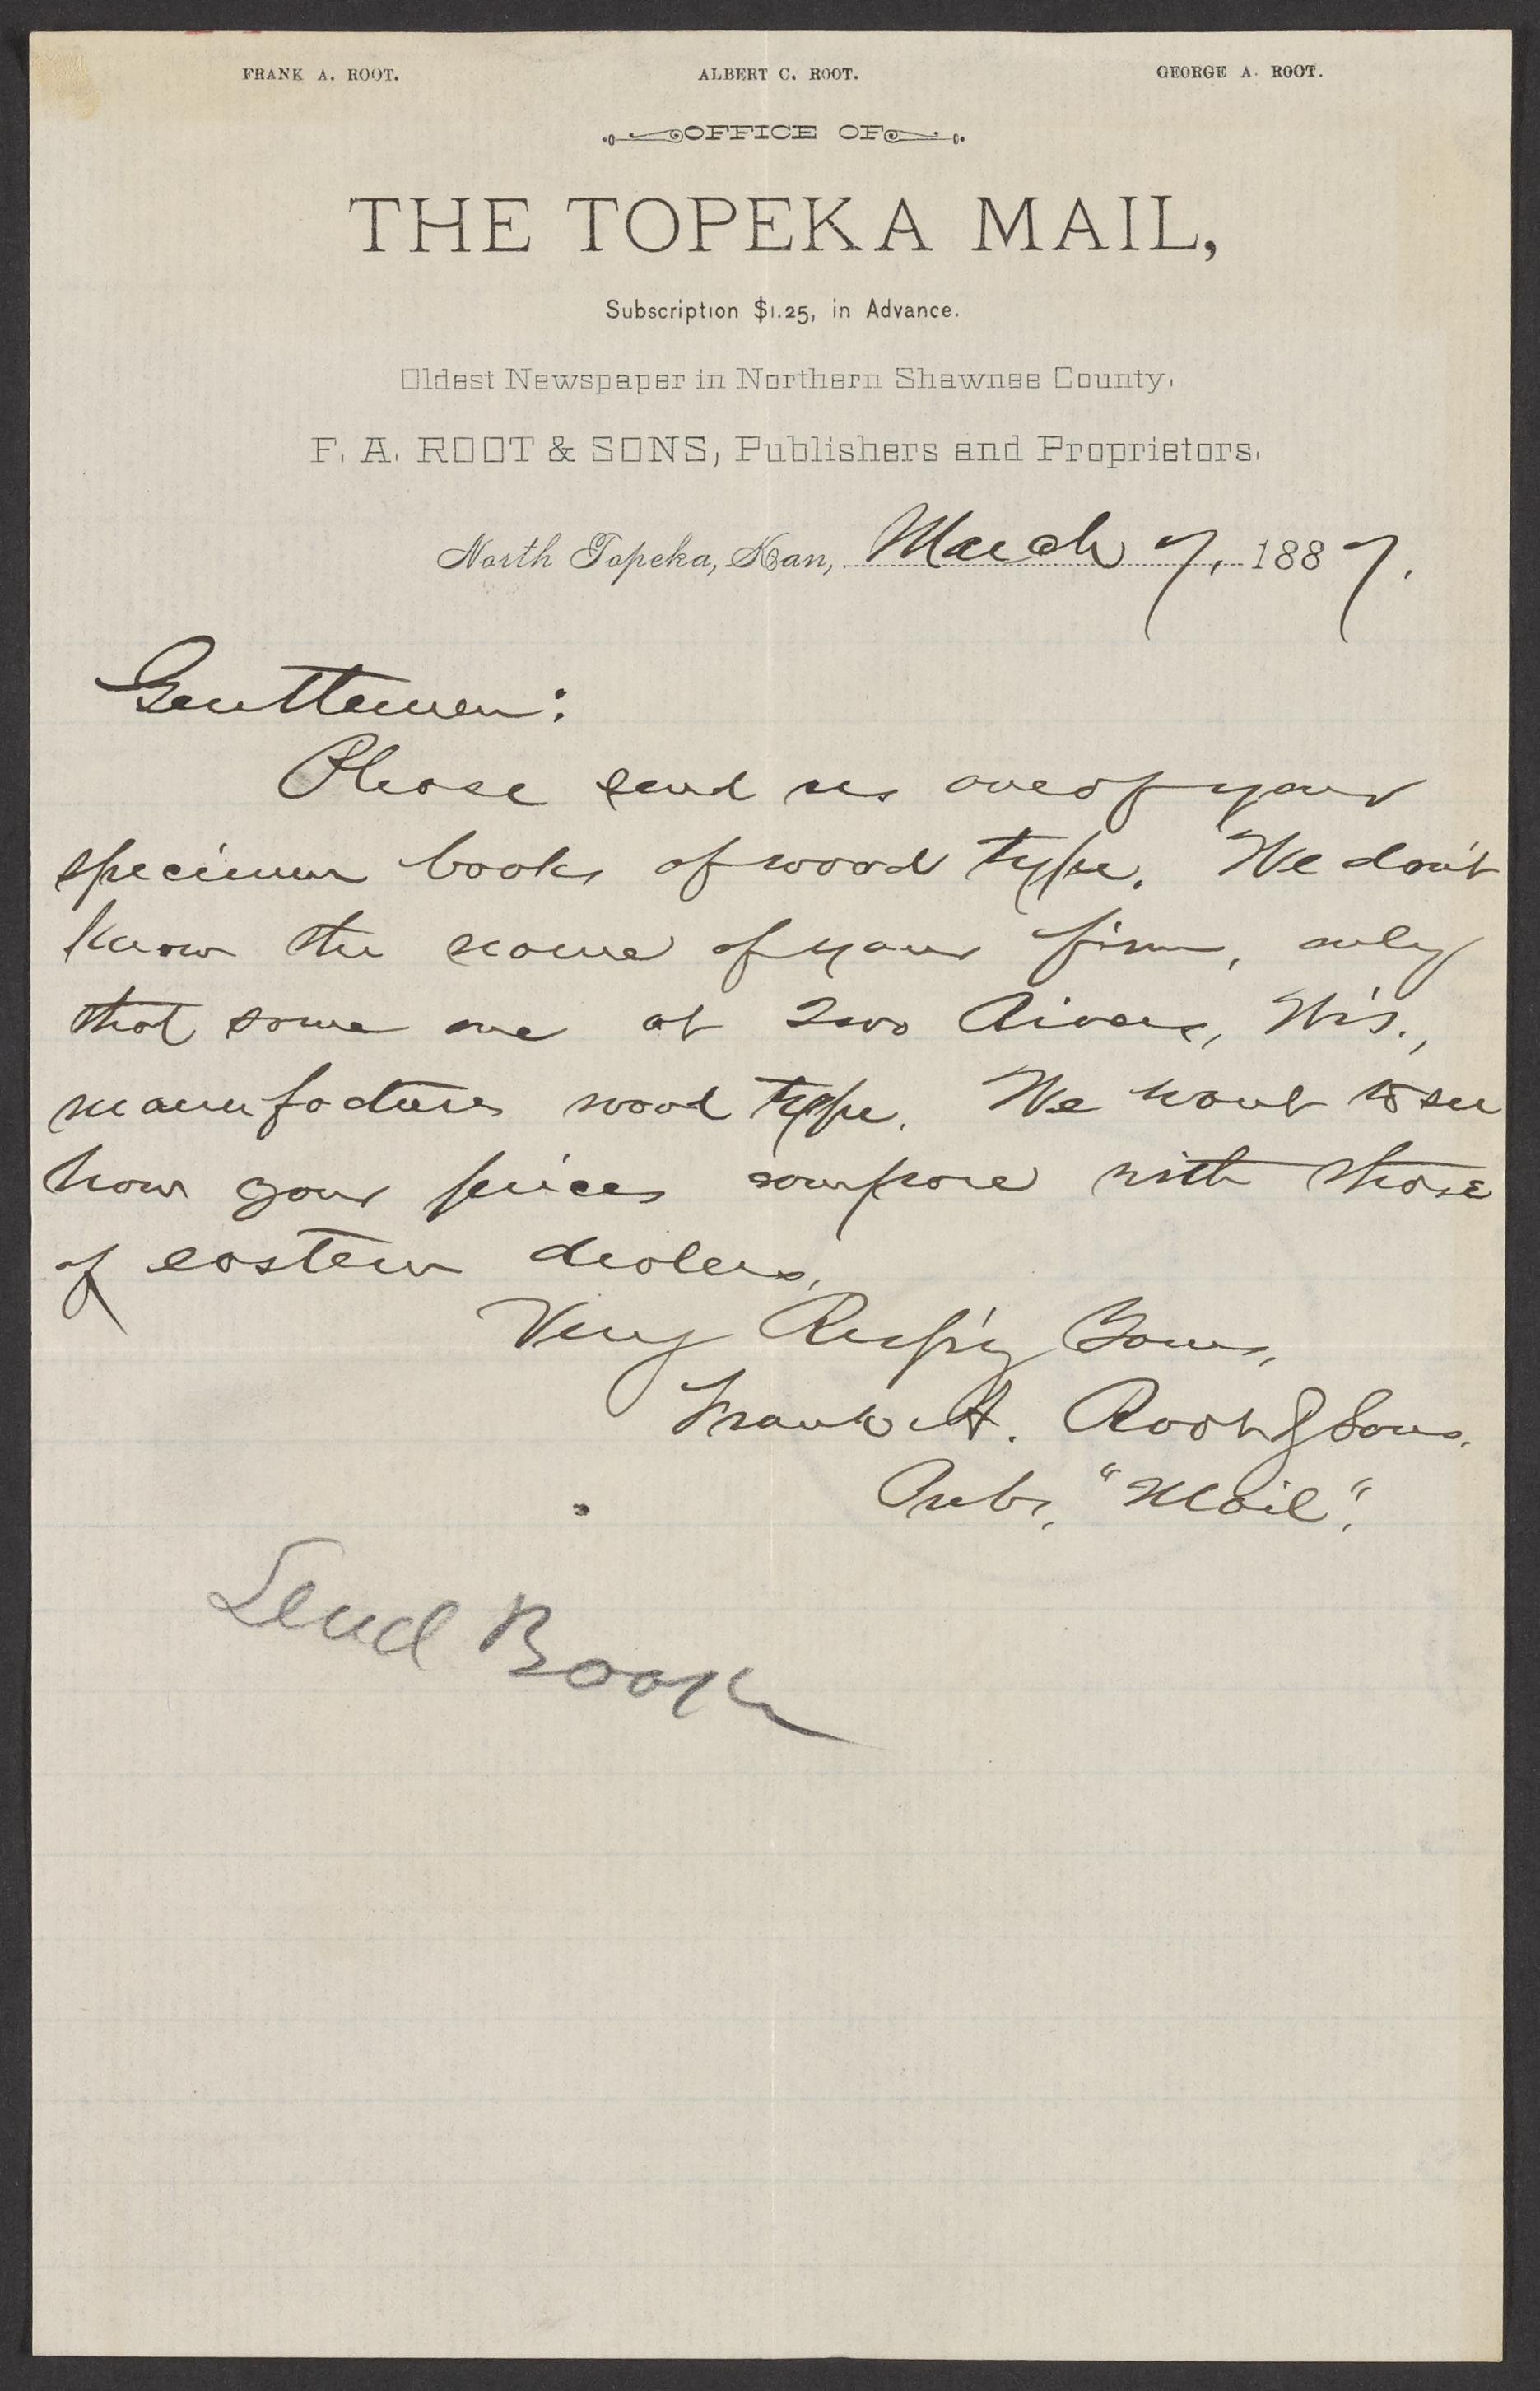 FRANK A. ROOT. ALBERT C. ROOT. GEORGE A. ROOT.
OFFICE OF
THE TOPEKA MAIL,
Subscription $1.25, in Advance.
Oldest Newspaper in Northern Shawnee County.
F. A. ROOT & SONS, Publishers and Proprietors.
North Topeka, Kan, March 7, 1887.
Gentlemen:
Please send us one of your
specimen books of wood type. We don't
know the name of your firm, only
that some one at Two Rivers, Wis.,
manufactures wood type. We want to see
how your prices compare with those
of eastern dealers.
Very Resp'y Yours,
Frank A. Root & Sons.
Pubs. "Mail".
Send Book